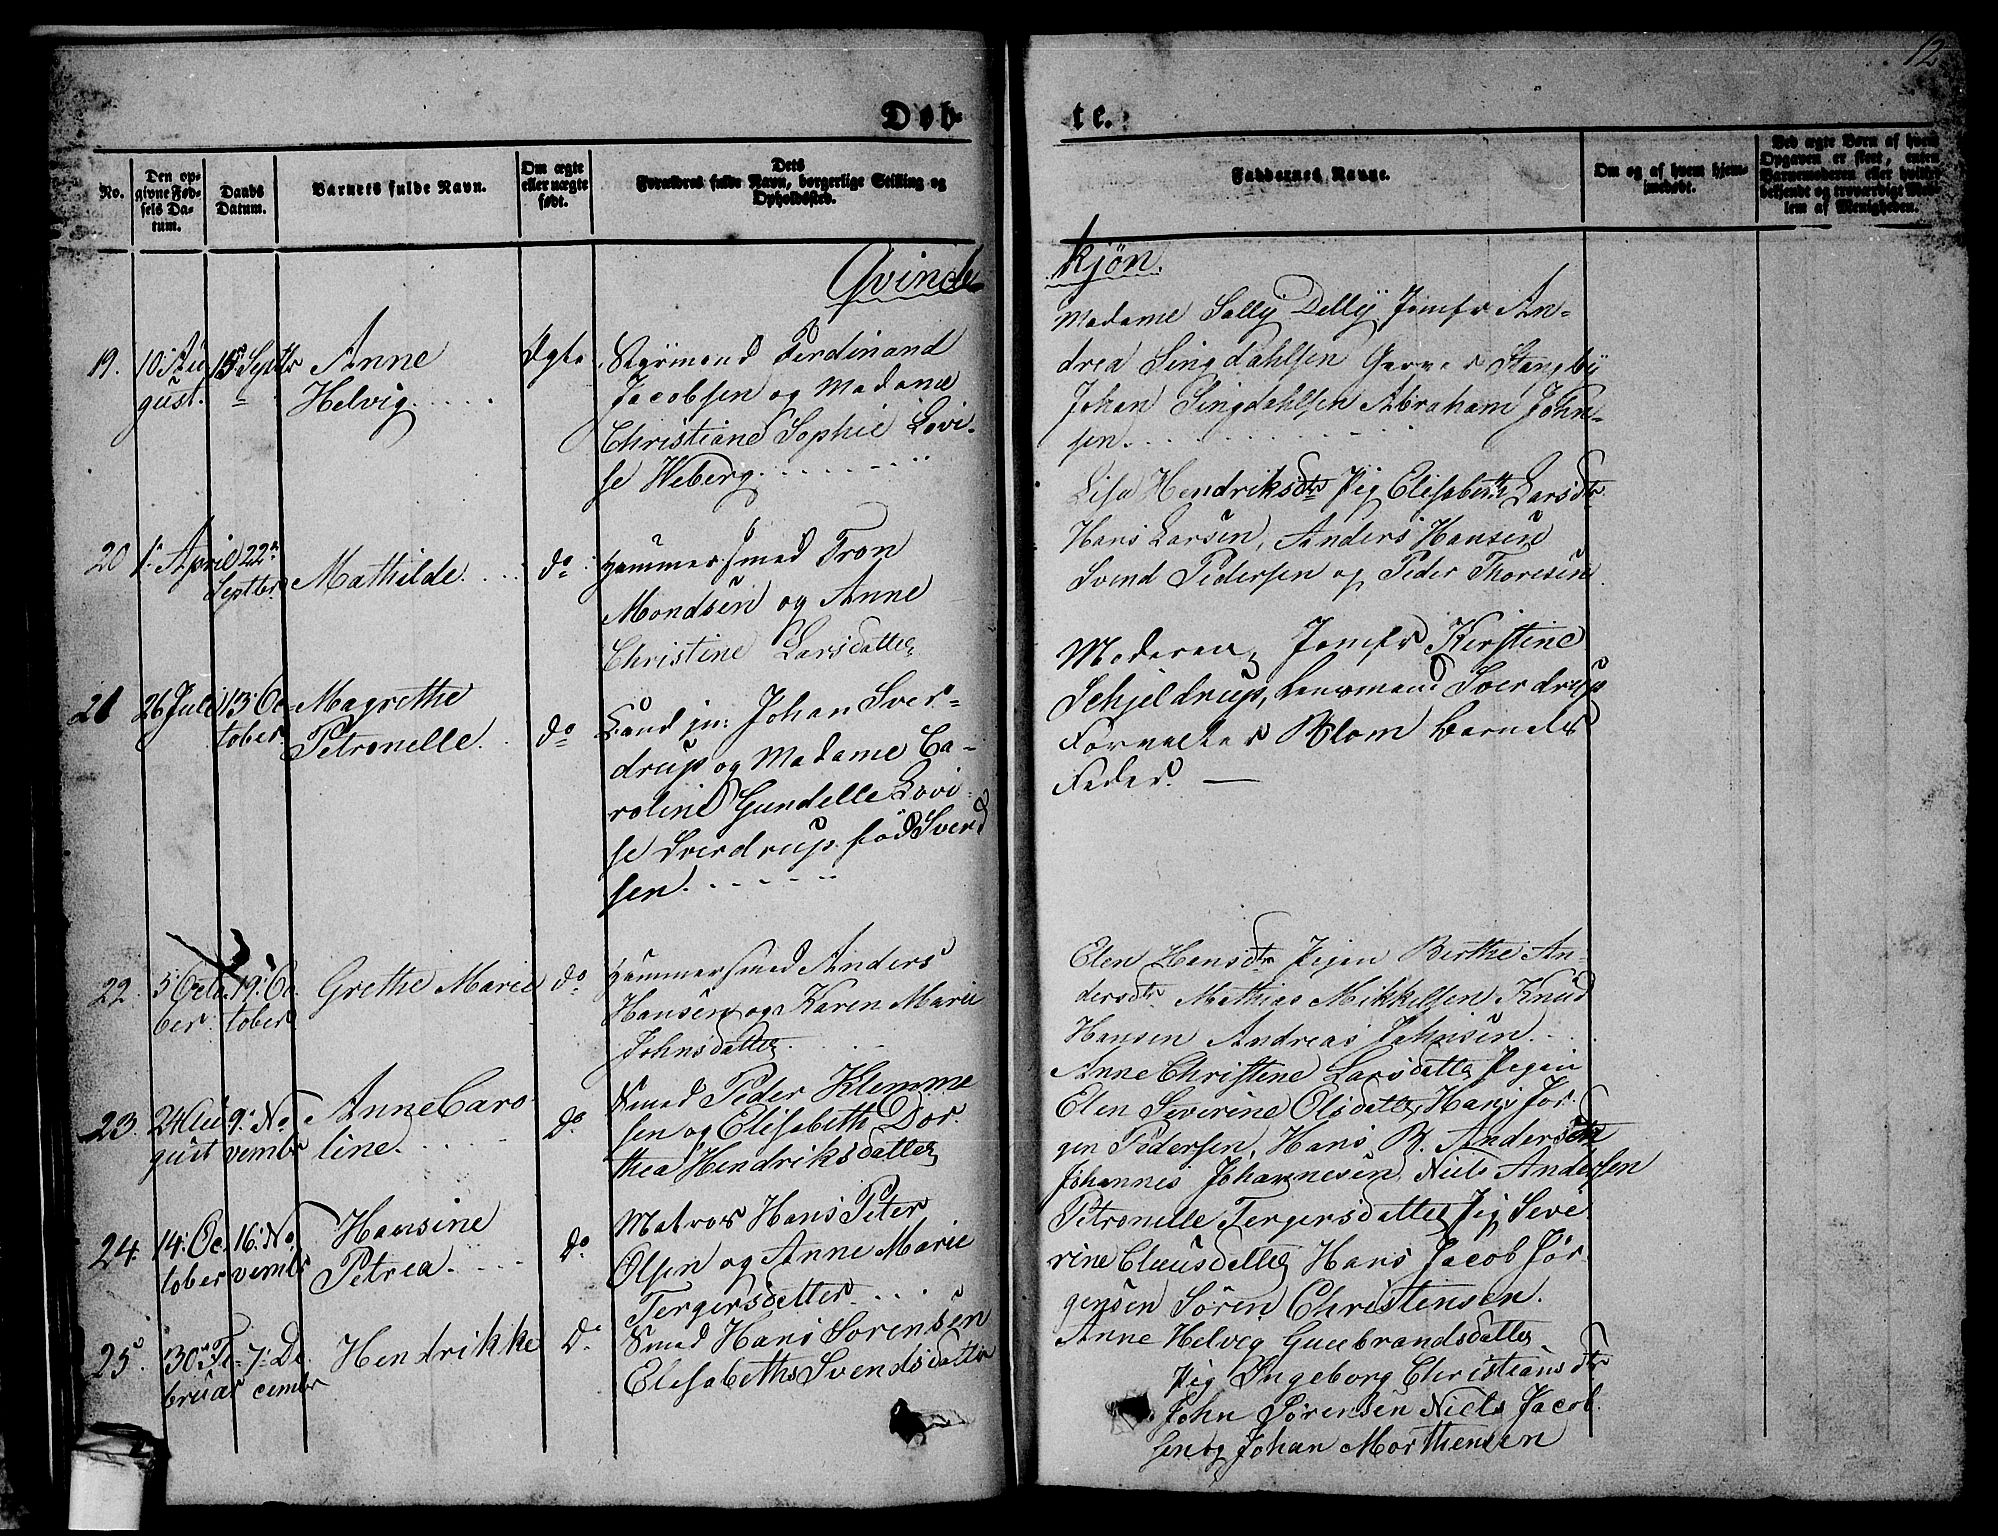 12
Døb-
te.
No.
Den op-
givne Fød-
sels Da-
tum.
Daabs
Datum.
Barnets fulde Navn.
Om ægte
eller uægte
født.
Dets
Forældres fulde Navn, borgerlige Stilling og
Opholdssted.
Faddernes Navne.
Om og af hvem hjem-
medøbt.
Ved ægte Børn af hvem
Opgaven er skeet, enten
Barnemoderen eller hvilket
bekjendt og troværdigt Med-
lem af Menigheden.
Qvinde
kjøn.
19.
10 Au
gust.
15 Septbr
Anne
Helvig
Ægte
Styrmand Ferdinand
Jacobsen og Madame
Christiane Sophie Lovi-
se Weberg
Madame Sally Delly Jomfr An-
drea Singdahlsen Garver Stangby
Johan Singdahlsen Abraham John-
sen
20
1. April
22n
Septbr
Mathilde
do
Hammersmed Tron
Mondsen og Anne
Christine Larsdatter
Lisa Hendriksdtr Pig Elisabeth Larsdtr
Hans Larsen, Anders Hansen
Svend Pedersen og Peder Thoresen
21
26 Juli
13 Oc-
tober
Magrethe
Petronelle
do
Johan Sver-
drup og Madame Ca-
roline Gundelle Lovi-
se Sverdrup fød Sverd
sen
Moderen, Jomfr Kirstine
Schjeldrup, Lensmand Sverdrup
Forvalter Blom Barnets
Fader.
22.
5 Octo
ber
19 Oc
tober
Grethe Marie
do
Hammersmed Anders
Hansen og Karen Marie
Johnsdatter
Elen Hansdtr Pigen Berthe An-
dersdtr Mathias Mikkelsen Knud
Hansen Andreas Johnsen
23.
24 Au
gust
9. No
vembr
Anne Caro
line.
do
Smed Peder Klemme
sen og Elisabeth Dor-
thea Hendriksdatter
Anne Christene Larsdatter Pigen
Elen Severine Olsdatter Hans Jør
gen Pedersen, Hans B. Andersen
Johannes Johannesen Niels Andersen
24.
14. Oc
tober
16. No
vembr
Hansine
Petrea.
do
Matros Hans Peter
Olsen og Anne Marie
Tergersdatter
Petronelle Tergersdatter Pig Seve
rine Clausdatter Hans Jacob Jør-
gensen Søren Christensen.
25.
30 Fe-
bruar
7. De
cembr
Hendrikke
Do
Smed Hans Sorensen
Elisabeth Svendsdatter
Anne Helvig Gulbrandsdatter
Pig Ingeborg Christiansdtr
John Sørensen Niels Jacob
sen og Johan Morthensen